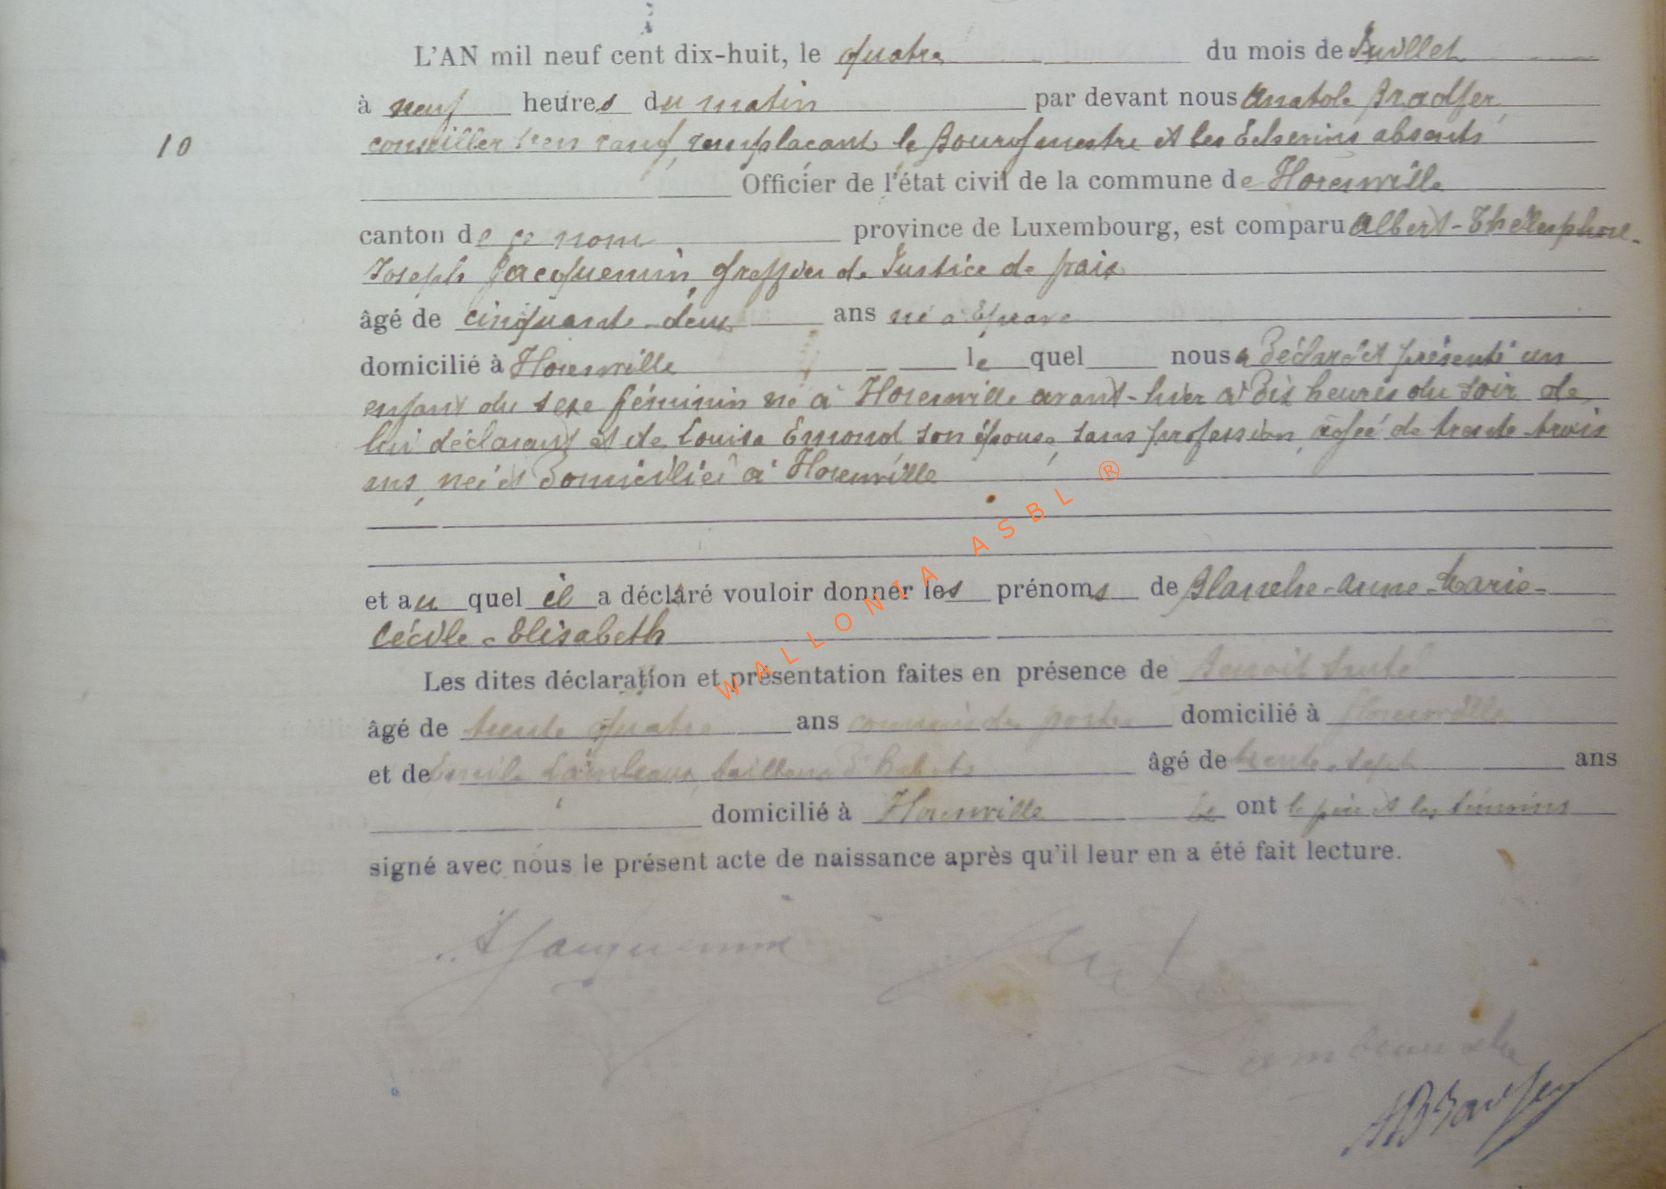 L'AN mil neuf cent dix-huit, le quatre du mois de Juillet
à neuf heures du matin par devant nous Anatole Bradfer,
10
conseiller 1er en rang, remplaçant le Bourgmestre et les Echevins absents
Officier de l'état civil de la commune de Florenville
canton de ce nom province de Luxembourg, est comparu Albert-Thélesphore-
Joseph Jacquemin, greffier de Justice de paix
âgé de cinquante-deux ans né à Eprave
domicilié à Florenville lequel nous a déclaré et présenté un
enfant du sexe féminin né à Florenville avant-hier à dix heures du soir de
lui déclarant et de Louise Emond son épouse, sans profession, âgée de trente-trois
ans, née et domiciliée à Florenville
et auquel il a déclaré vouloir donner les prénoms de Blanche-Anne-Marie-
Cécile-Elisabeth
Les dites déclaration et présentation faites en présence de Benoit
âgé de trente quatre ans domicilié à Florenville
et de Emile tailleur d'habits âgé de trente-sept ans
domicilié à Florenville Et ont le père et les témoins
signé avec nous le présent acte de naissance après qu'il leur en a été fait lecture.
Jacquemin
ABradfer
WALLONIA ASBL ®